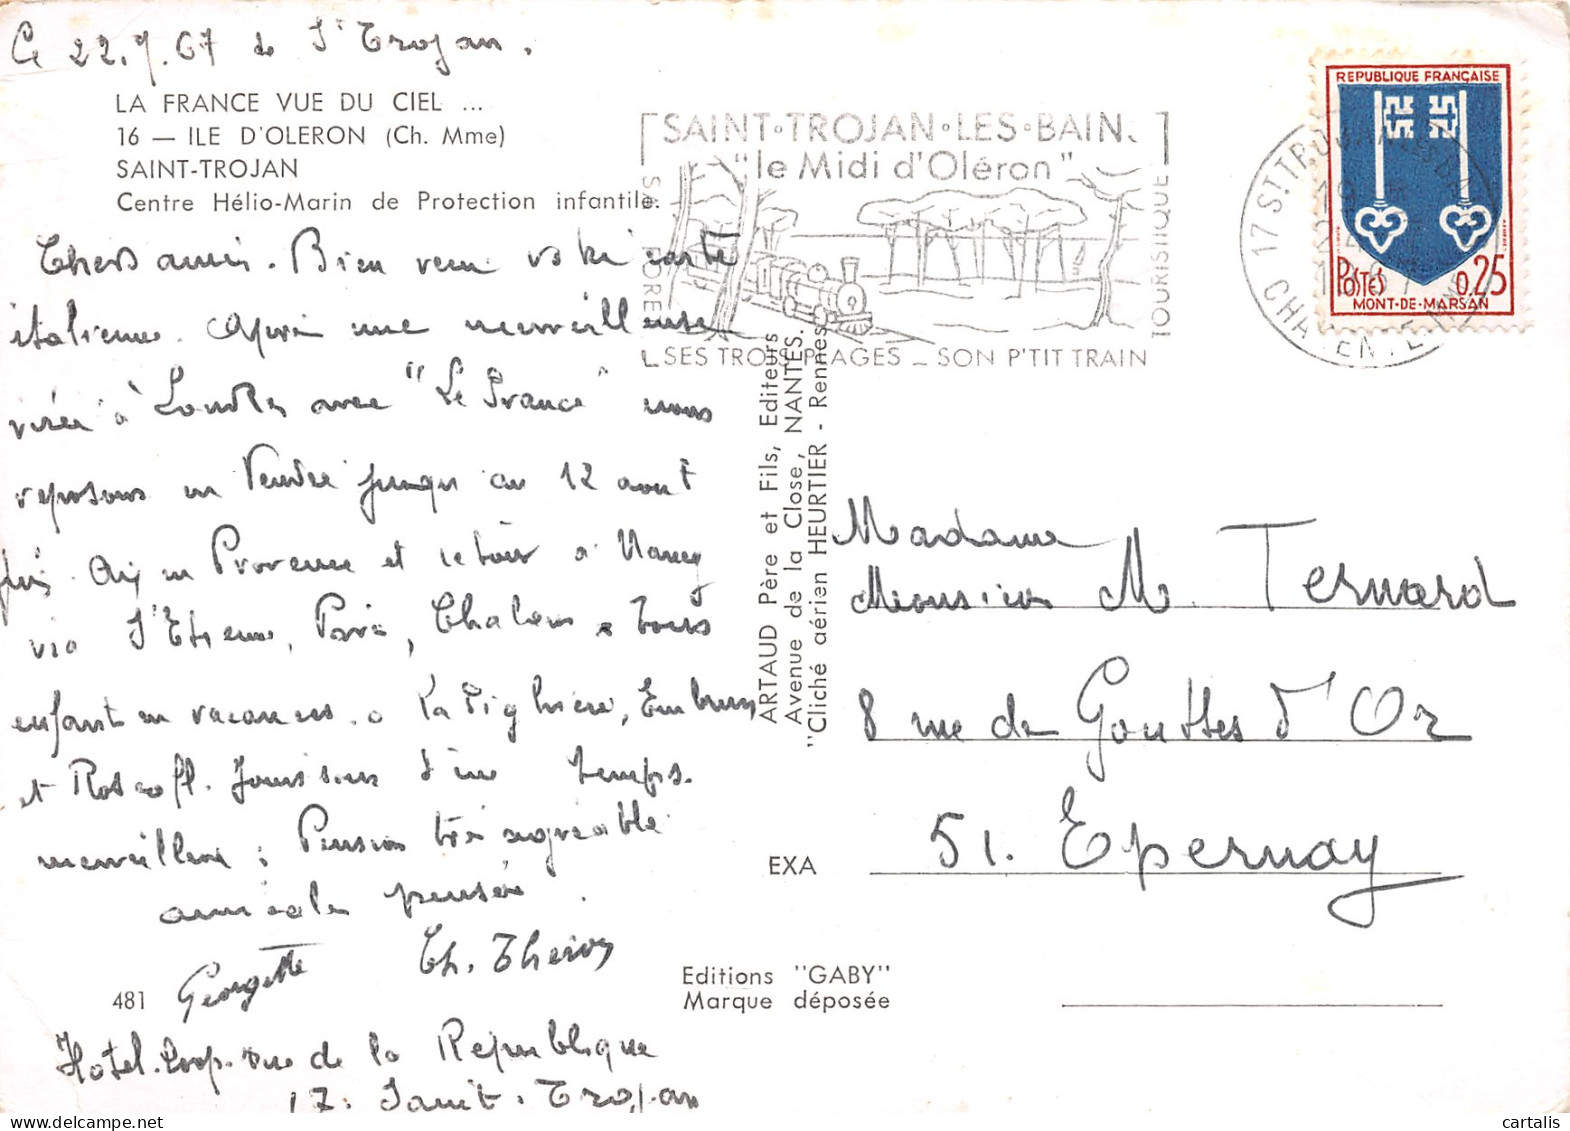 Ce 22.7.67 de St Trojan.
LA FRANCE VUE DU CIEL ...
16 — ILE D'OLERON (Ch. Mme)
SAINT-TROJAN
Centre Hélio-Marin de Protection infantile.
Chers amis. Bien reçu votre carte
italienne. Après une merveilleuse
virée à Londres avec "Le France" nous
reposons en Vendée jusqu'au 12 aout
puis en Provence et retour à Nancy
via St Etienne, Paris, Chalons. Tous
enfants en vacances. Embrun,
et Roscoff. Jouissons d'un temps
merveilleux ; Pension très agréable
amicales pensées.
Georgette Ch.
481
Hotel. rue de la République
17. Saint. Trojan
SAINT·TROJAN·LES·BAINS
"le Midi d'Oléron"
SA FORET
TOURISTIQUE
SES TROIS PLAGES _ SON P'TIT TRAIN
REPUBLIQUE FRANÇAISE
POSTES 0,25
MONT-DE-MARSAN
17 ST. TROJAN-LES-BAINS
CHARENTE-MME
ARTAUD Père et Fils, Editeurs
Avenue de la Close, NANTES.
"Cliché aérien HEURTIER - Rennes"
Madame
Monsieur M. Ternard
8 rue de Gouttes d'Or
51. Epernay
EXA
Editions "GABY"
Marque déposée
cartalis
www.delcampe.net